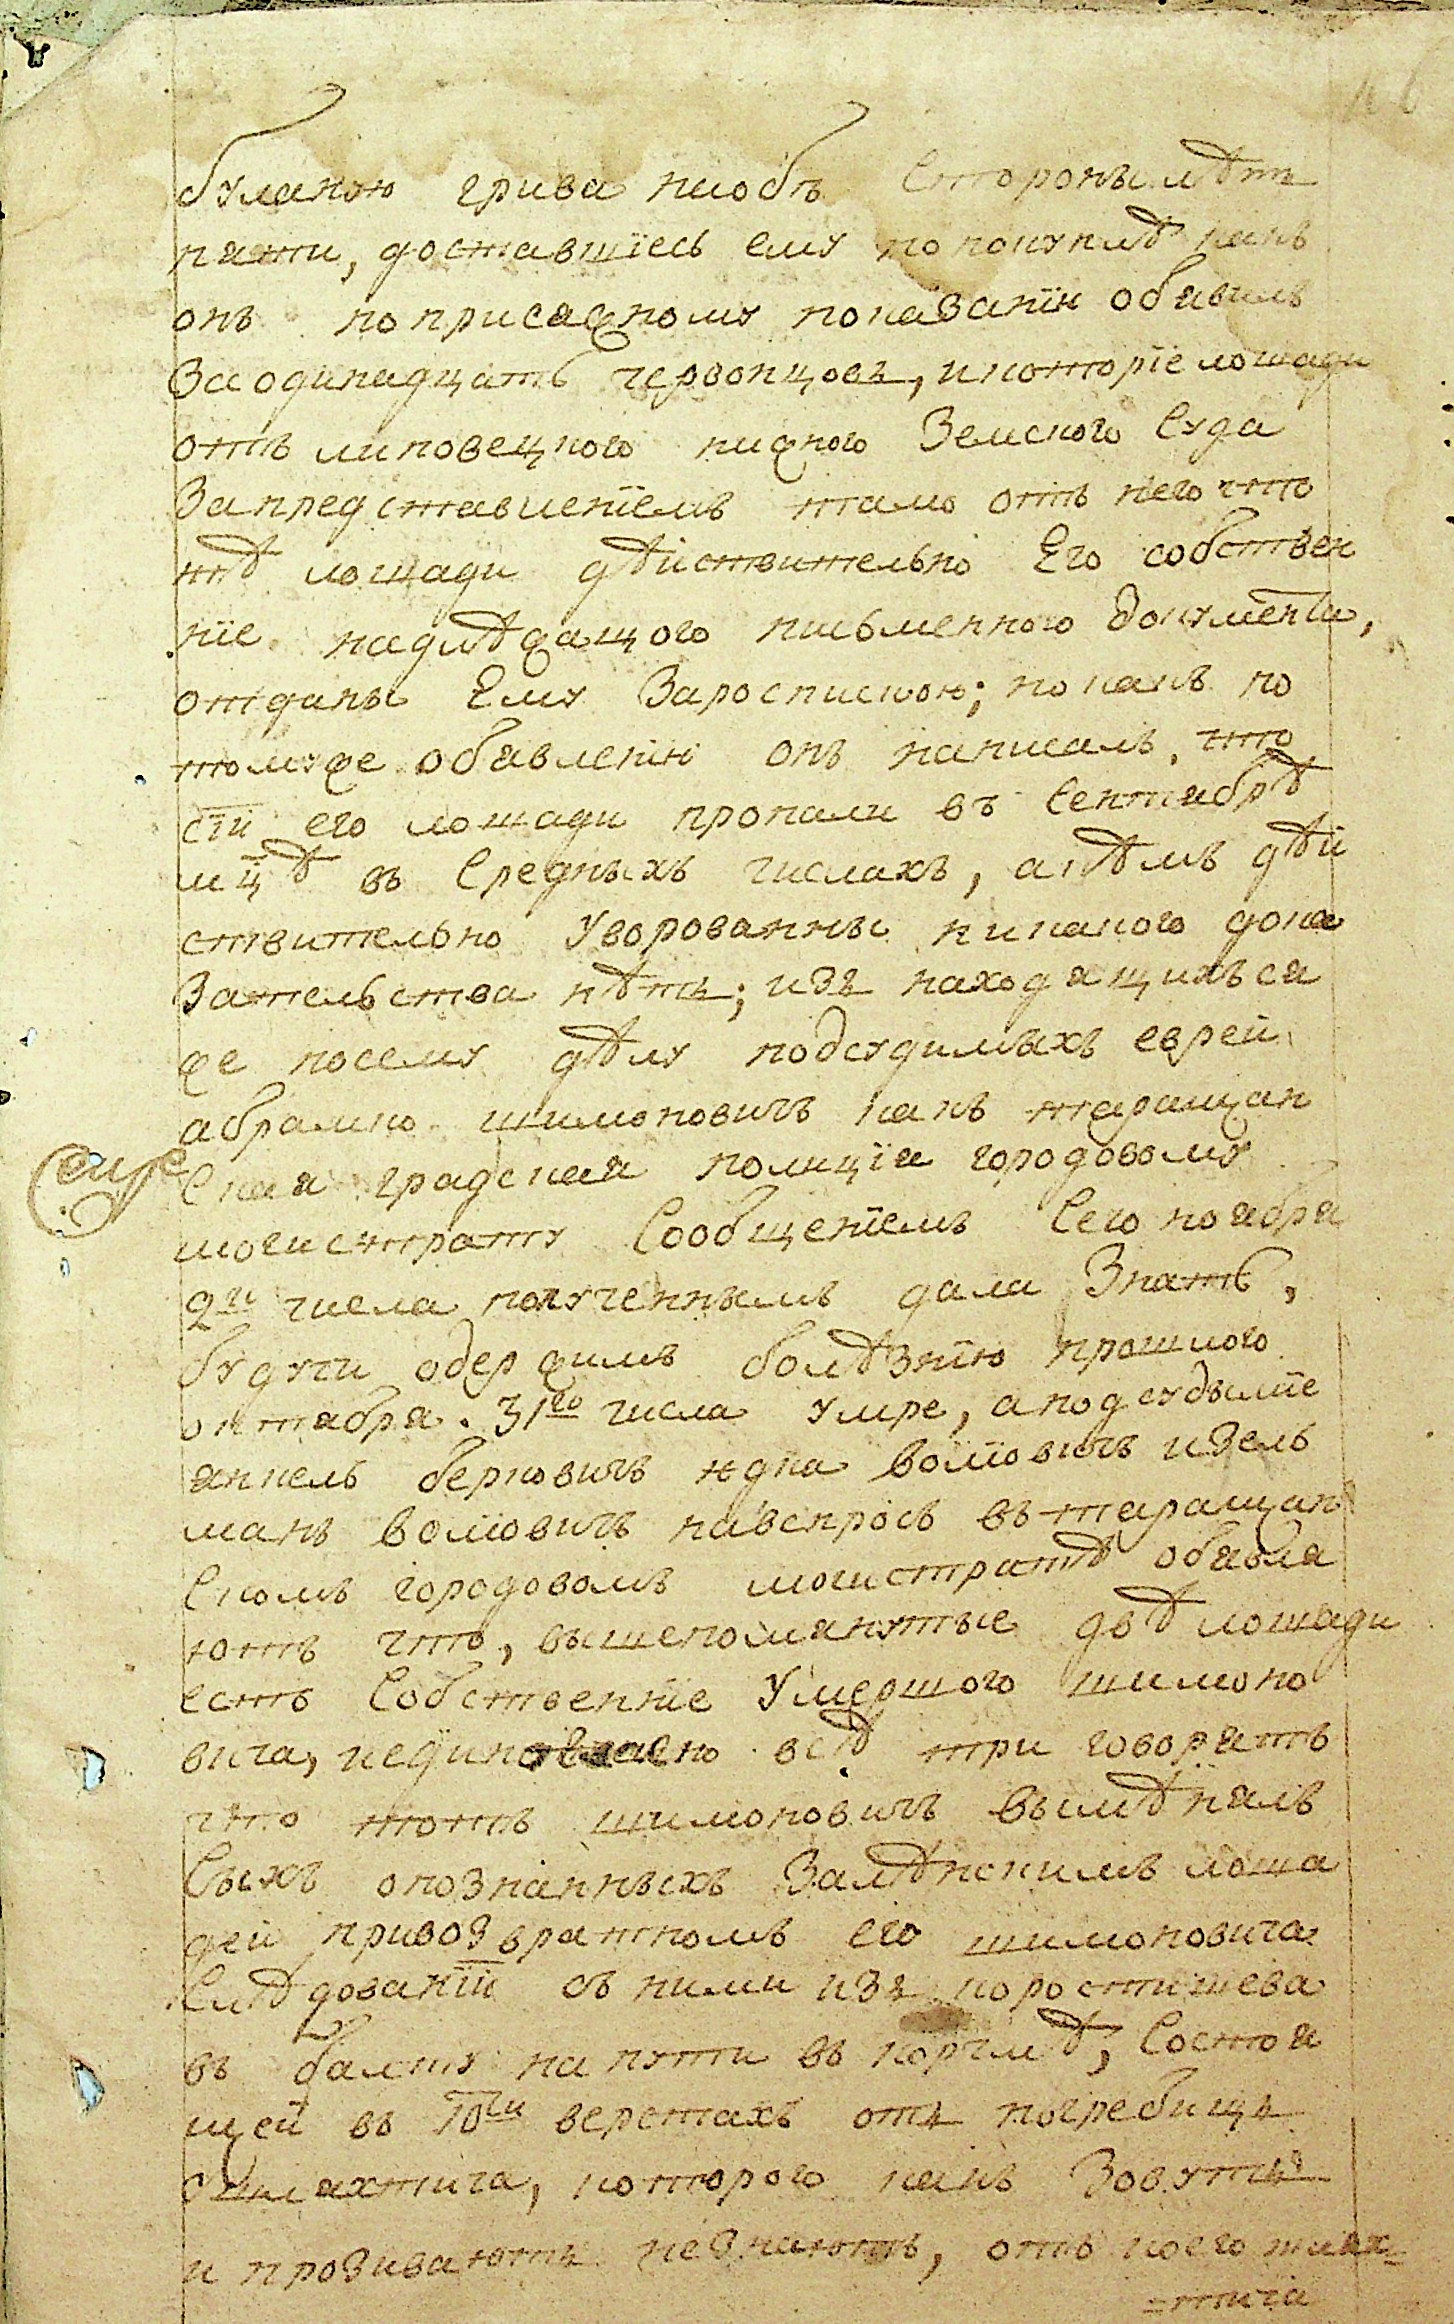 буланую грива на обѣ стороны лѣтъ
пяти, доставшїесь ему по покупкѣ какъ
онъ по присяжному показанїю обявилъ
за одинадцать червонцовъ, и которїе лошади
отъ липовецкого нижного Земского Суда
За представленїемъ тамо отъ него что
тѣ лошади дѣйствительно Его собствен
нїе надлѣжащого письменного документа,
отданы Ему Зароспискою; но какъ по
тому же обявленїю онъ написалъ, что
сїи его лошади пропали въ Сентябрѣ
мцѣ въ Среднихъ числахъ, а чѣмъ дѣй
ствительно Уворованны никакого дока
Зательства нѣтъ; изъ находящихъся
же посему дѣлу подсудимыхъ еврей
абрамко шимоновичъ какъ таращан
Ская градская полицїя городовому
могистрату Сообщенїемъ Сего ноября
9ги числа полученнымъ дала Знать,
будучи одержимъ болѣзнїю прошлого
октября 31го числа умре, а подсудымїе
янкель берковичъ юдка волковичъ и Зель
манъ волковичъ на вспросъ въ таращан
Скомъ городовомъ могистратѣ обявля
ютъ что, вышепомянутые двѣ лошади
есть Собственнїе Умершого шимоно
вича, и единогласно всѣ три говорятъ
что тотъ шимоновичъ вымѣнялъ
Сыхъ опознанныхъ Залѣнскимъ лоша
дей при возвратномъ его шимоновича
Слѣдованїи съ ними изъ коростишева
въ балту на пути въ корчмѣ, Состоя
щей въ 10ти верстахъ отъ погребищъ
с шляхтича, которого какъ Зовутъ
и прозиваютъ незнаютъ, отъ коего шлях=
=тича